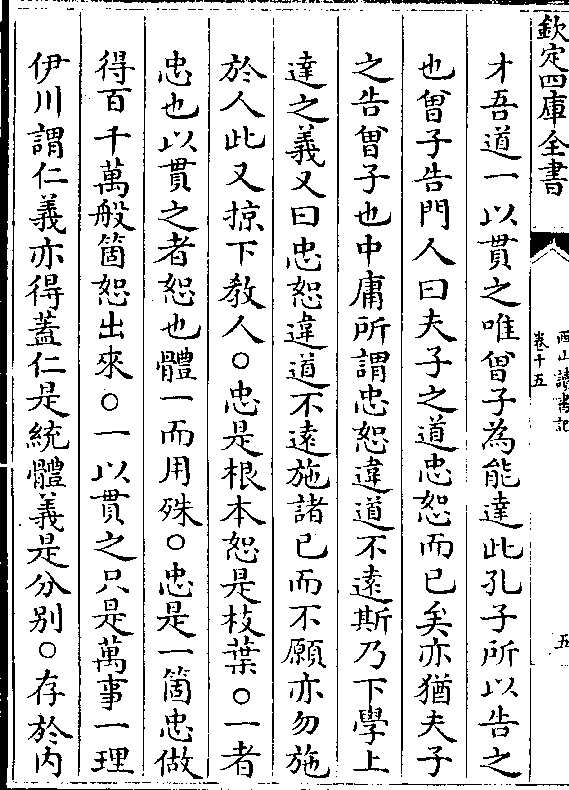 欽定四庫全書
西山讀書記
卷十五
五
才吾道一以貫之唯曾子為能達此孔子所以告之
也曾子告門人曰夫子之道忠恕而已矣亦猶夫子
之告曾子也中庸所謂忠恕違道不遠斯乃下學上
達之義又曰忠恕違道不遠施諸己而不願亦勿施
於人此又掠下教人○忠是根本恕是枝葉○一者
忠也以貫之者恕也體一而用殊○忠是一箇忠做
得百千萬般箇恕出來○一以貫之只是萬事一理
伊川謂仁義亦得蓋仁是統體義是分别○存於内